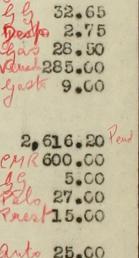 GG 32.65
2.75
Gas 28.50
285.00
Gast 9.00
2,616.20 Pend
CMR 600.00
GG 5.00
27.00
Prest 15.00
Auto 25.00